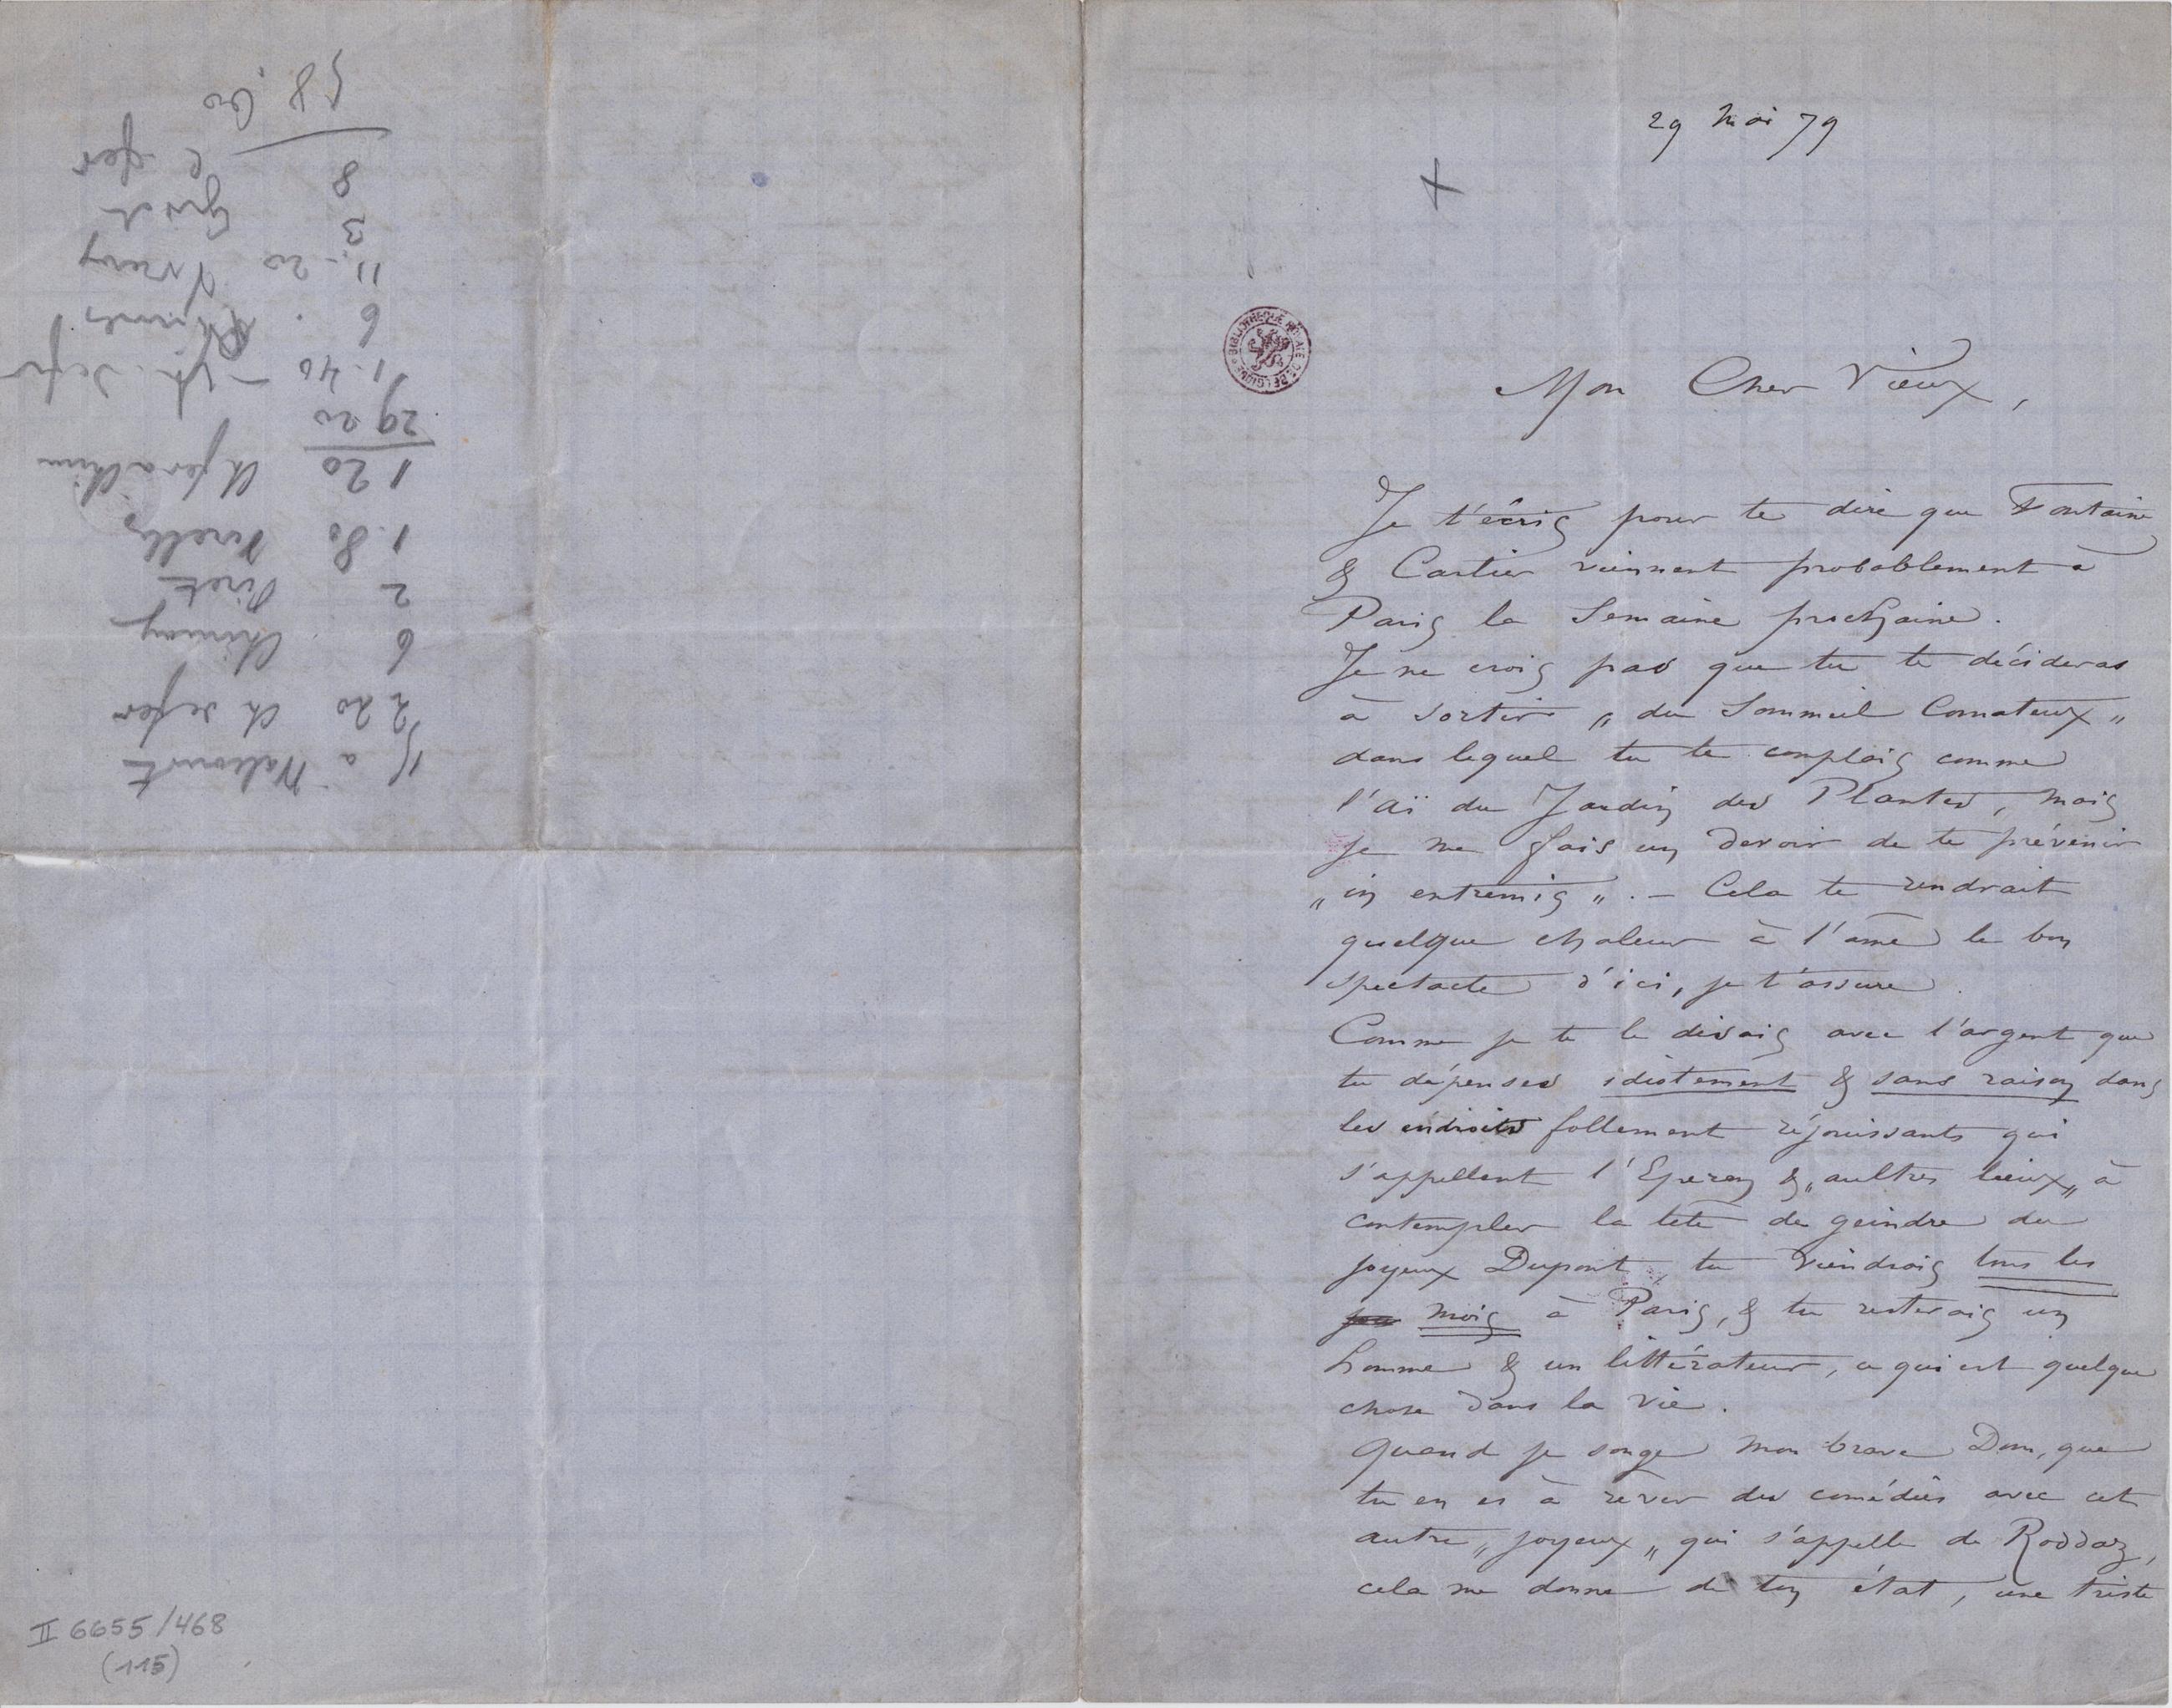 29 Mai 79
+
BIBLIOTHEQUE ROYALE DE BELGIQUE
Mon Cher Vieux,
Je t'écris pour te dire que Fontaine
& Cartier viennent probablement à
Paris la Semaine prochaine.
Je ne crois pas que tu te décideras
à sortir „du Sommeil Comateux„
dans lequel tu te complais comme
l'aï du Jardin des Plantes, mais
je me fais un devoir de te prévenir
„in extremis„. — Cela te rendrait
quelque chaleur à l'âme le bon
spectacle d'ici, je t'assure.
Comme je te le disais avec l'argent que
tu dépenses idiotement & sans raison dans
les endroits follement réjouissants qui
s'appellent l'Eperon & „aultres lieux„ à
contempler la tete de geindre du
joyeux Dupont, tu viendrais tous les
mois à Paris, & tu resterais un
homme & un littérateur, ce qui est quelque
chose dans la vie.
Quand je songe mon brave Dom, que
tu en es à rêver des comédies avec cet
autre „joyeux„ qui s'appelle de Roddaz,
cela me donne de ton état, une triste
15 a Walcourt
2 20 ch de fer
6 Chimay
2 Piret
1.80
1 20
29 20
1.40 – ch. de fer
6
11.20
3
8 c fer
58.60
II 6655/468
(115)